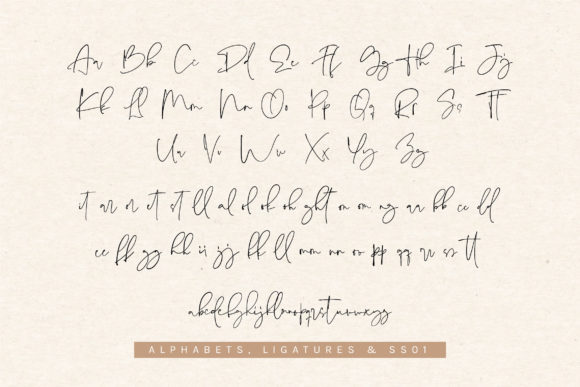 Aa Bb Cc Dd Ee Ff Gg Hh Ii Jj
Kk Ll Mm Nn Oo Pp Qq Rr Ss Tt
Uu Vv Ww Xx Yy Zz
it an or et st ll al ol ok oh ght on om ng ar bb cc dd
ee ff gg hh ii jj kk ll mm nn oo pp qq rr ss tt
abcdefghijklmnopqrstuvwxyz
ALPHABETS, LIGATURES & SS01